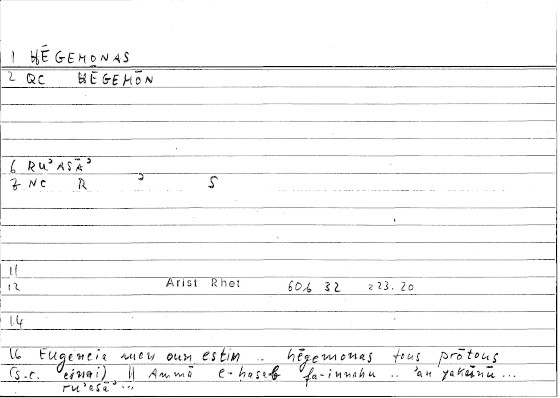 1 HĒGEMONAS
2 QC HĒGEMŌN
6 RUʾASĀʾ
7 NC R ʾ S
11
12 Arist Rhet 60b 32 223.20
14
16 Eugeneia men oun estin .. hēgemonas tous prōtous
(s.c. einai) || Ammā l-ḥasab fa-innahu .. ʾan yakūnū...
ruʾasāʾ...